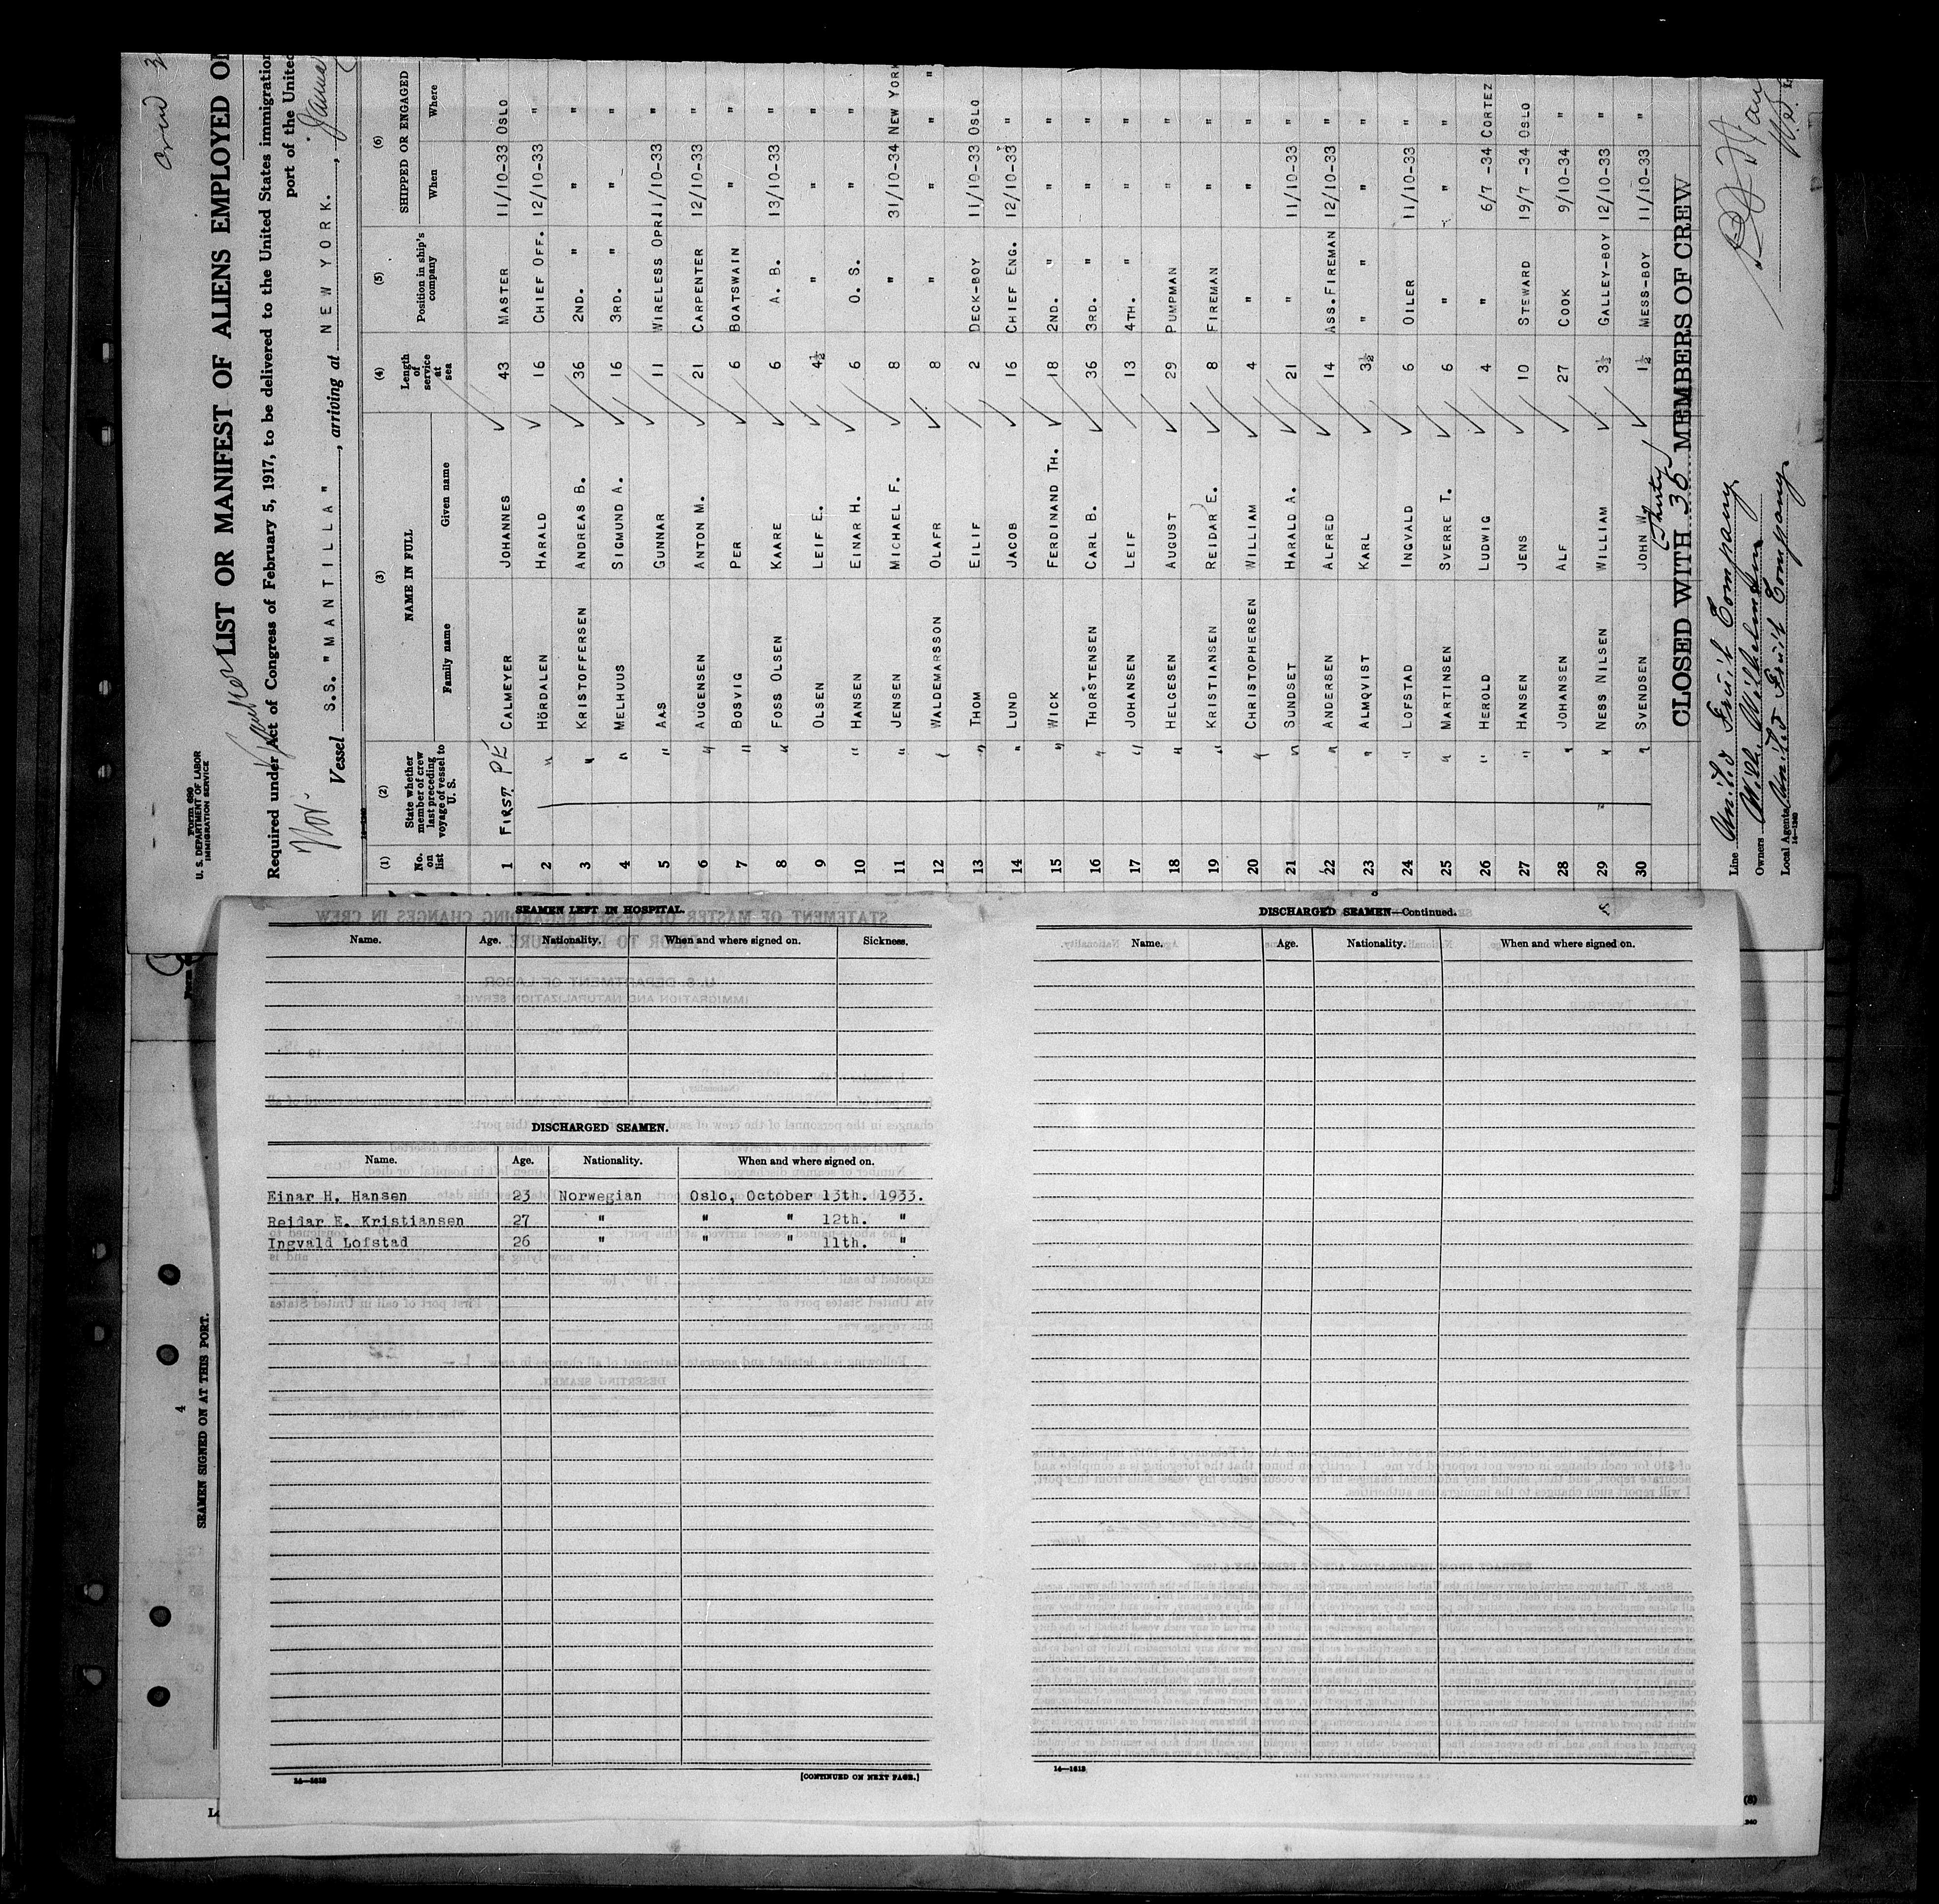 Form 680
U. S. DEPARTMENT OF LABOR
IMMIGRATION SERVICE
LIST OR MANIFEST OF ALIENS EMPLOYED ON
Required under Act of Congress of February 5, 1917, to be delivered to the United States immigration
port of the United
Vessel S.S. "MANTILLA", arriving at NEW YORK.,
(1) (2) (3) (4) (5) (6)
No. on list
State whether member of crew last preceding voyage of vessel to U. S.
NAME IN FULL
Family name Given name
Length of service at sea
Position in ship's company
SHIPPED OR ENGAGED
When Where
1 FIRST CALMEYER JOHANNES 43 MASTER 11/10-33 OSLO
2 " HÖRDALEN HARALD 16 CHIEF OFF. 12/10-33 "
3 " KRISTOFFERSEN ANDREAS B. 36 2ND. " " "
4 " MELHUUS SIGMUND A. 16 3RD. " " "
5 " AAS GUNNAR 11 WIRELESS OPR. 11/10-33 "
6 " AUGENSEN ANTON M. 21 CARPENTER 12/10-33 "
7 " BOSVIG PER 6 BOATSWAIN " "
8 " FOSS OLSEN KAARE 6 A. B. 13/10-33 "
9 OLSEN LEIF E. 4½ " " "
10 " HANSEN EINAR H. 6 O. S. " "
11 " JENSEN MICHAEL F. 8 " 31/10-34 NEW YORK
12 " WALDEMARSSON OLAFR 8 " " "
13 " THOM EILIF 2 DECK-BOY 11/10-33 OSLO
14 " LUND JACOB 16 CHIEF ENG. 12/10-33 "
15 " WICK FERDINAND TH. 18 2ND. " " "
16 " THORSTENSEN CARL B. 36 3RD. " " "
17 " JOHANSEN LEIF 13 4TH. " " "
18 " HELGESEN AUGUST 29 PUMPMAN " "
19 " KRISTIANSEN REIDAR E. 8 FIREMAN " "
20 " CHRISTOPHERSEN WILLIAM 4 " " "
21 " SUNDSET HARALD A. 21 " 11/10-33 "
22 " ANDERSEN ALFRED 14 ASS.FIREMAN 12/10-33 "
23 " ALMQVIST KARL 3½ " " " "
24 " LOFSTAD INGVALD 6 OILER 11/10-33 "
25 " MARTINSEN SVERRE T. 6 " " "
26 " HEROLD LUDWIG 4 " 6/7 -34 CORTEZ
27 " HANSEN JENS 10 STEWARD 19/7 -34 OSLO
28 " JOHANSEN ALF 27 COOK 9/10-34 "
29 " NESS NILSEN WILLIAM 3½ GALLEY-BOY 12/10-33 "
30 " SVENDSEN JOHN W. 1½ MESS-BOY 11/10-33 "
(Thirty)
CLOSED WITH 30 MEMBERS OF CREW
Line United Fruit Company
Owners Wilh. Wilhelmsen
Local Agents United Fruit Company
14—1240
4
SEAMEN SIGNED ON AT THIS PORT.
SEAMEN LEFT IN HOSPITAL.
Name. Age. Nationality. When and where signed on. Sickness.
DISCHARGED SEAMEN.
Name. Age. Nationality. When and where signed on.
Einar H. Hansen 23 Norwegian Oslo, October 13th. 1933.
Reidar E. Kristiansen 27 " " " 12th. "
Ingvald Lofstad 26 " " " 11th. "
14—1613 [CONTINUED ON NEXT PAGE.]
DISCHARGED SEAMEN—Continued.
Name. Age. Nationality. When and where signed on.
14—1613